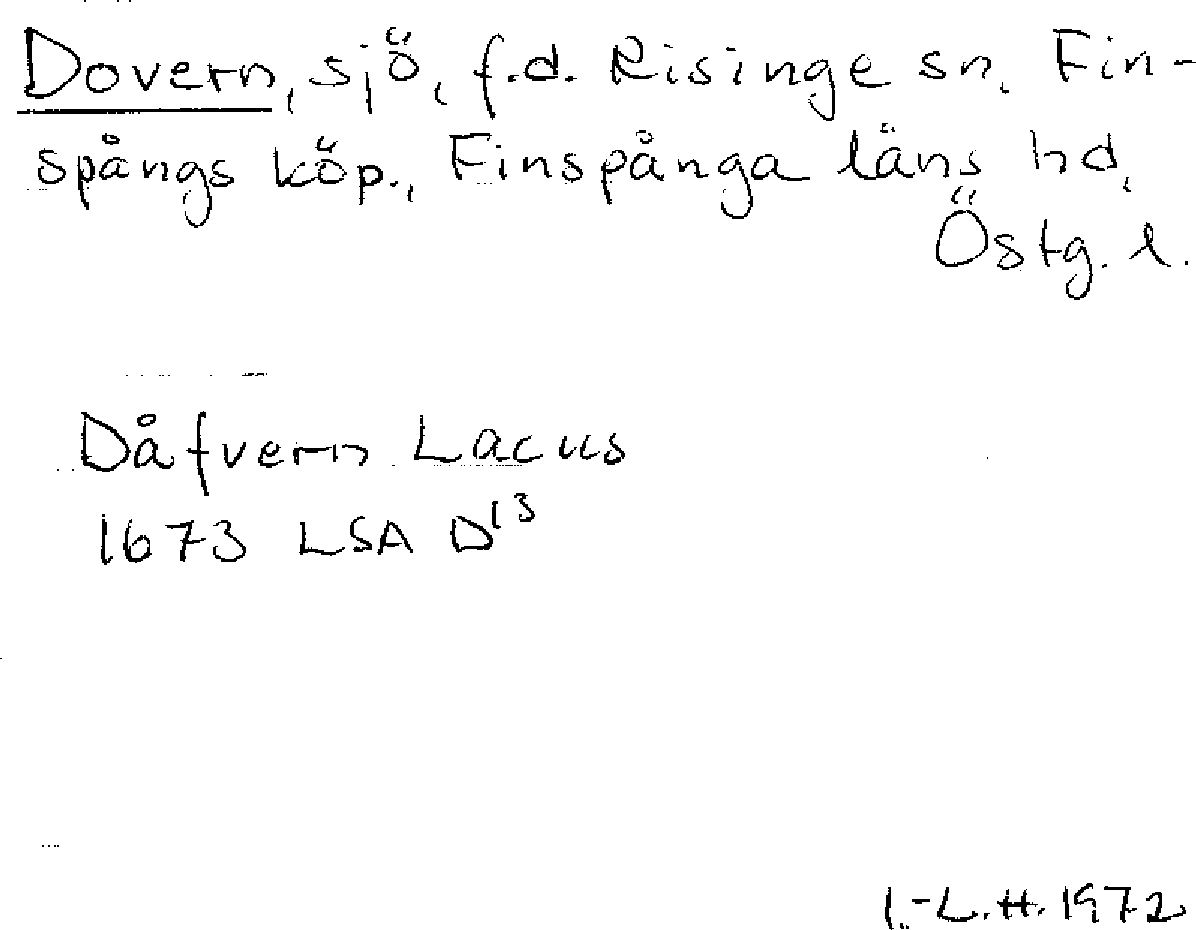 Dovern, sjö, f.d. Risinge sn, Fin-
spångs köp., Finspånga läns hd,
Östg. l.
Dåfvern Lacus
1673 LSA D13
I.-L.H. 1972